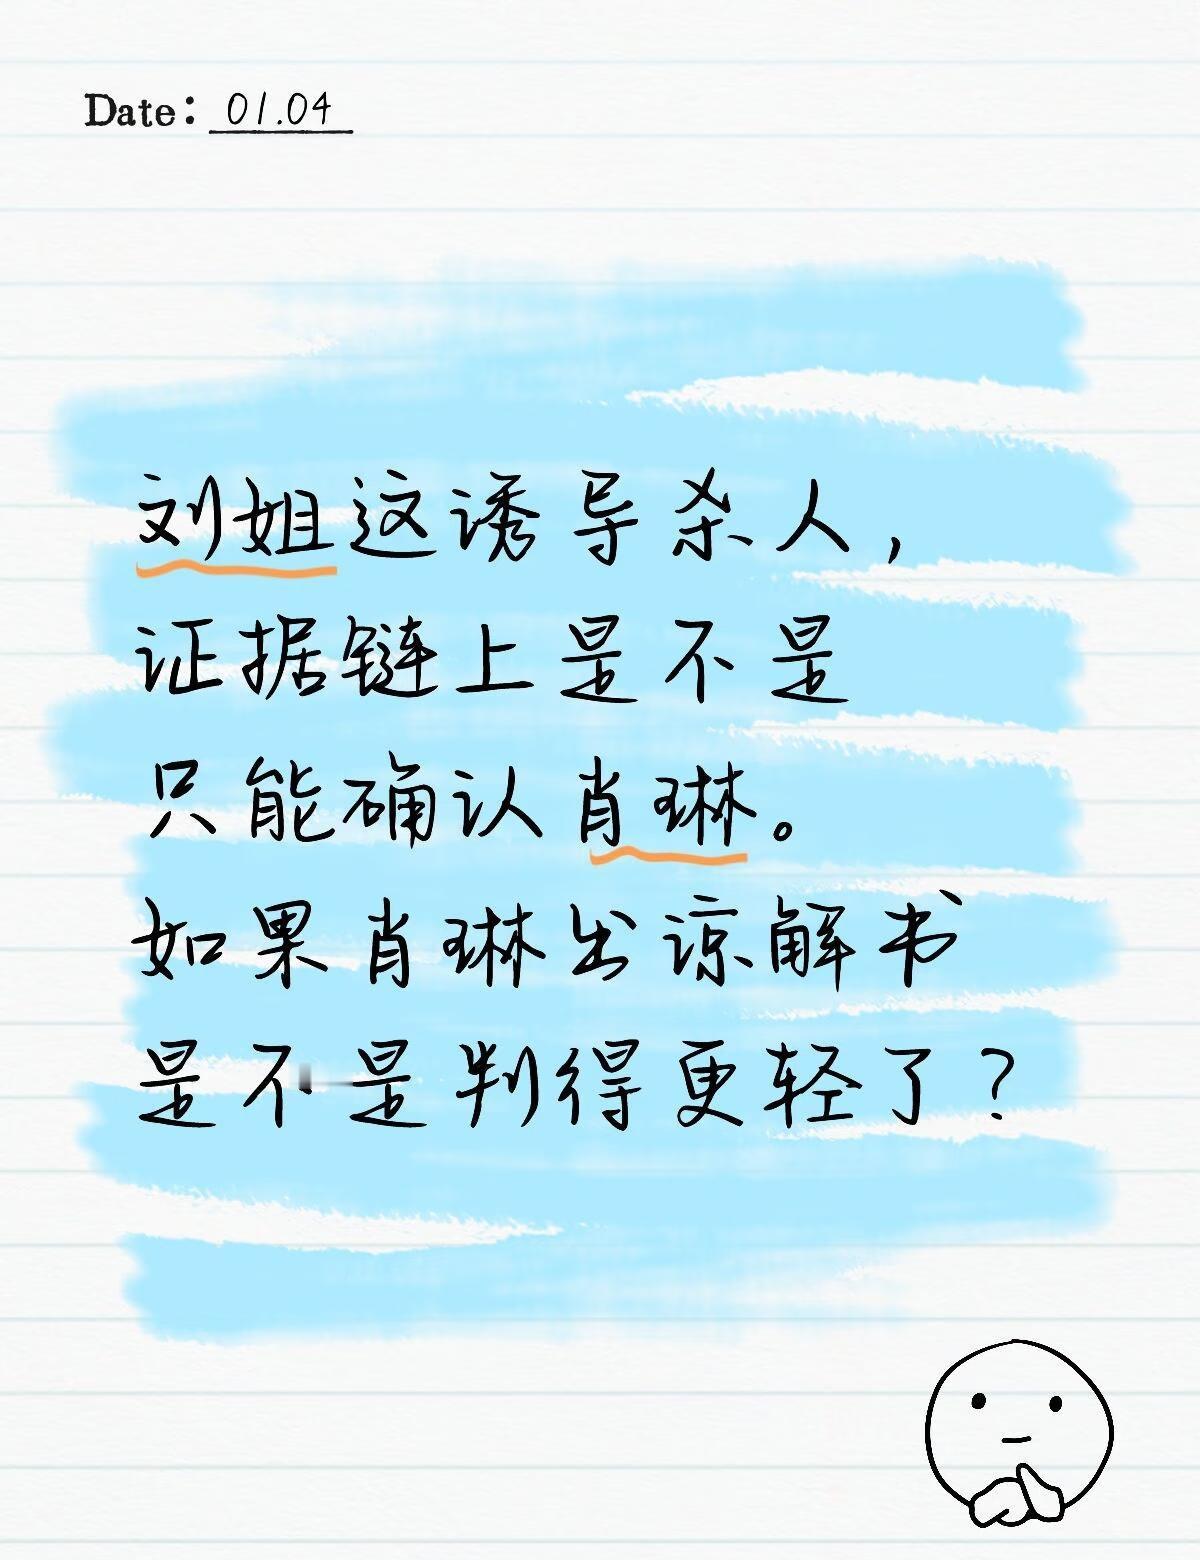 Date: 01.04
刘姐这诱导杀人,
证据链上是不是
只能确认肖琳。
如果肖琳出谅解书
是不是判得更轻了?